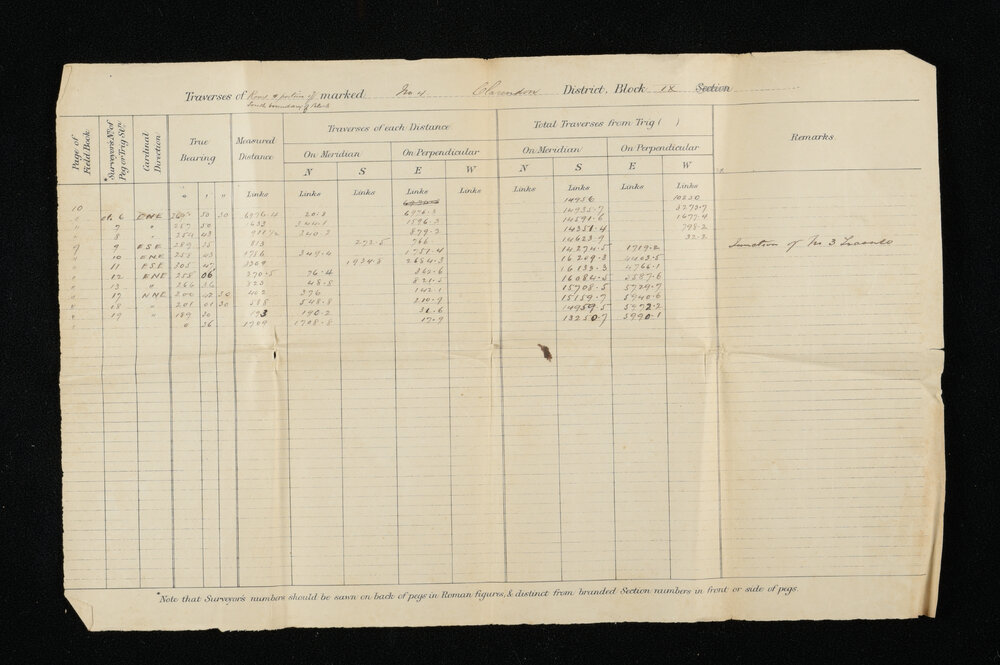 Traverses of Road & portion of marked No 4 Clarendon District. Block IX Section
South boundary of Block
Page of Field Book
*Surveyor's No of Peg or Trig Stn
Cardinal Direction
True Bearing
Measured Distance
Traverses of each Distance
Total Traverses from Trig ( )
Remarks.
On Meridian On Perpendicular On Meridian On Perpendicular
N S E W N S E W
° ' " Links Links Links Links Links Links Links Links Links
10 14956 10250
6 ENE 30 30 6976.4 20.8 6976.3 14935.7 3273.7
7 " 257 50 1633 344.1 1596.3 14591.6 1677.4
8 " 254 43 340.2 879.2 14351.4 798.2
9 ESE 289 35 813 272.5 766 14623.9 32.2 Junction of No 3 Traverse
10 ENE 258 43 1786 349.4 1751.4 14274.5 1719.2
11 ESE 305 1934.8 2684.3 16209.3 4403.5
12 ENE 258 06 370.5 76.4 362.6 16133.3 4766.1
13 " 266 36 823 48.8 821.5 16084.5 5587.6
17 NNE 200 42 30 402 376 142.1 15708.5 5729.7
18 " 201 01 30 588 548.8 210.9 15159.7 5940.6
19 " 189 30 193 190.2 31.6 14959.5 5972.2
" 0 36 1709 1708.8 17.9 13250.7 5990.1
*Note that Surveyor's numbers should be sawn on back of pegs in Roman figures, & distinct from branded Section numbers in front or side of pegs.